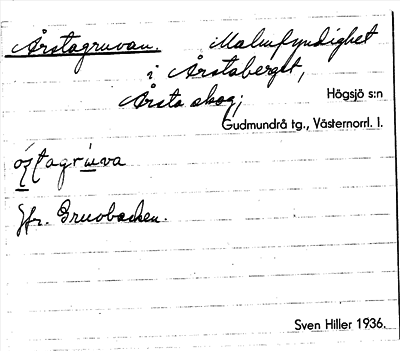 Årstagruvan. Malmfyndighet
i Årstaberget,
Årsta skog; Högsjö s:n
Gudmundrå tg., Västernorrl. l.
Jfr. Gruvbacken.
Sven Hiller 1936.